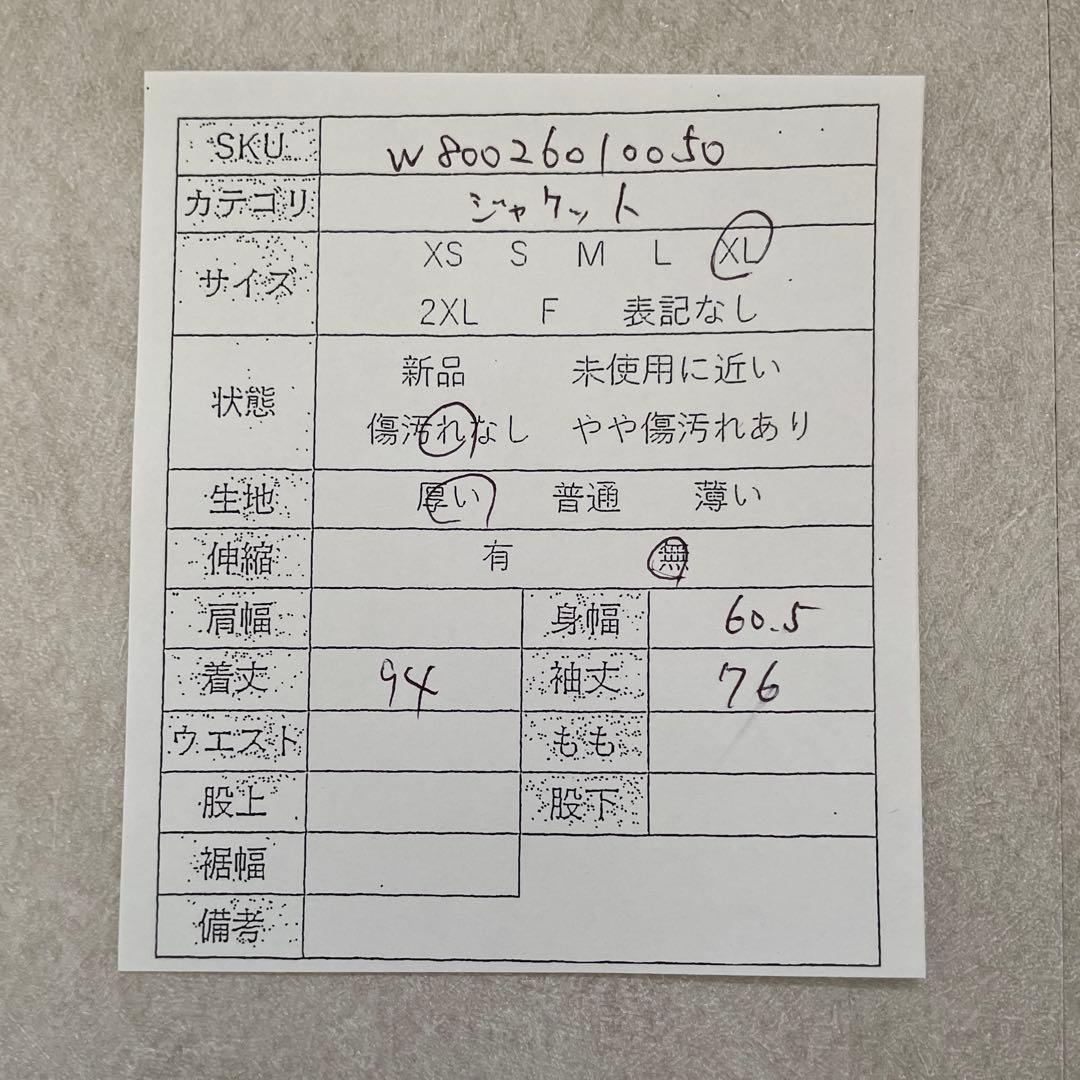 SKU W80026010050
カテゴリ ジャケット
サイズ XS S M L XL
2XL F 表記なし
状態 新品 未使用に近い
傷汚れなし やや傷汚れあり
生地 厚い 普通 薄い
伸縮 有 無
肩幅 身幅 60.5
着丈 94 袖丈 76
ウエスト もも
股上 股下
裾幅
備考